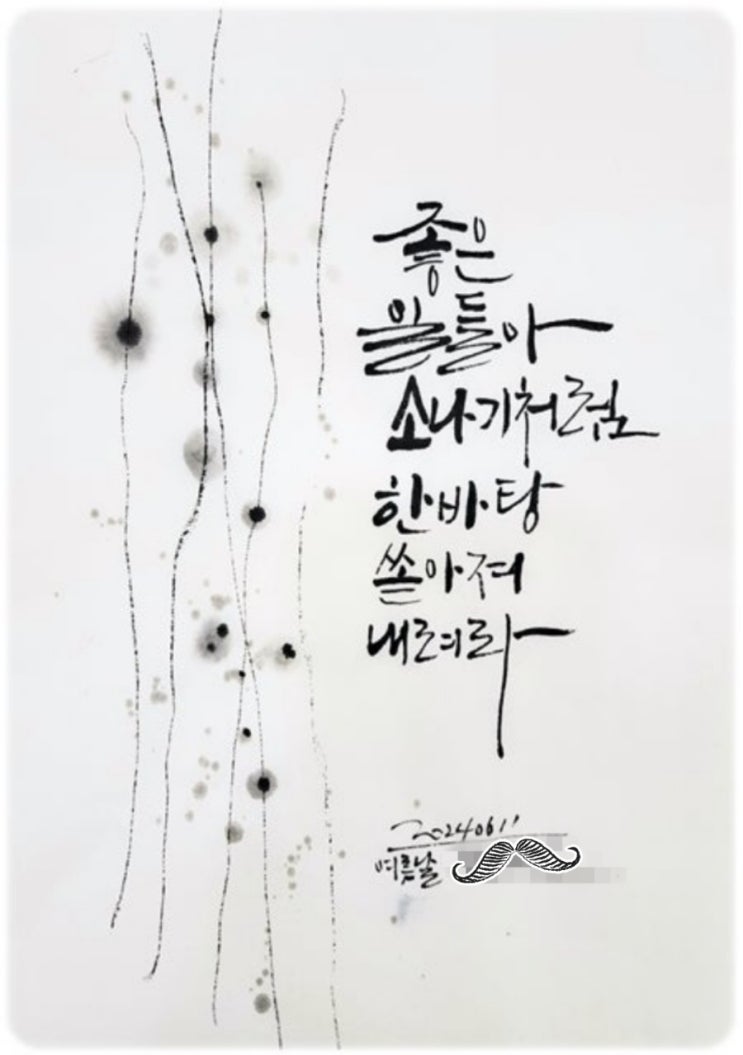 좋은
일들아
소나기처럼
한바탕
쏟아져
내려라
20240611
여름날